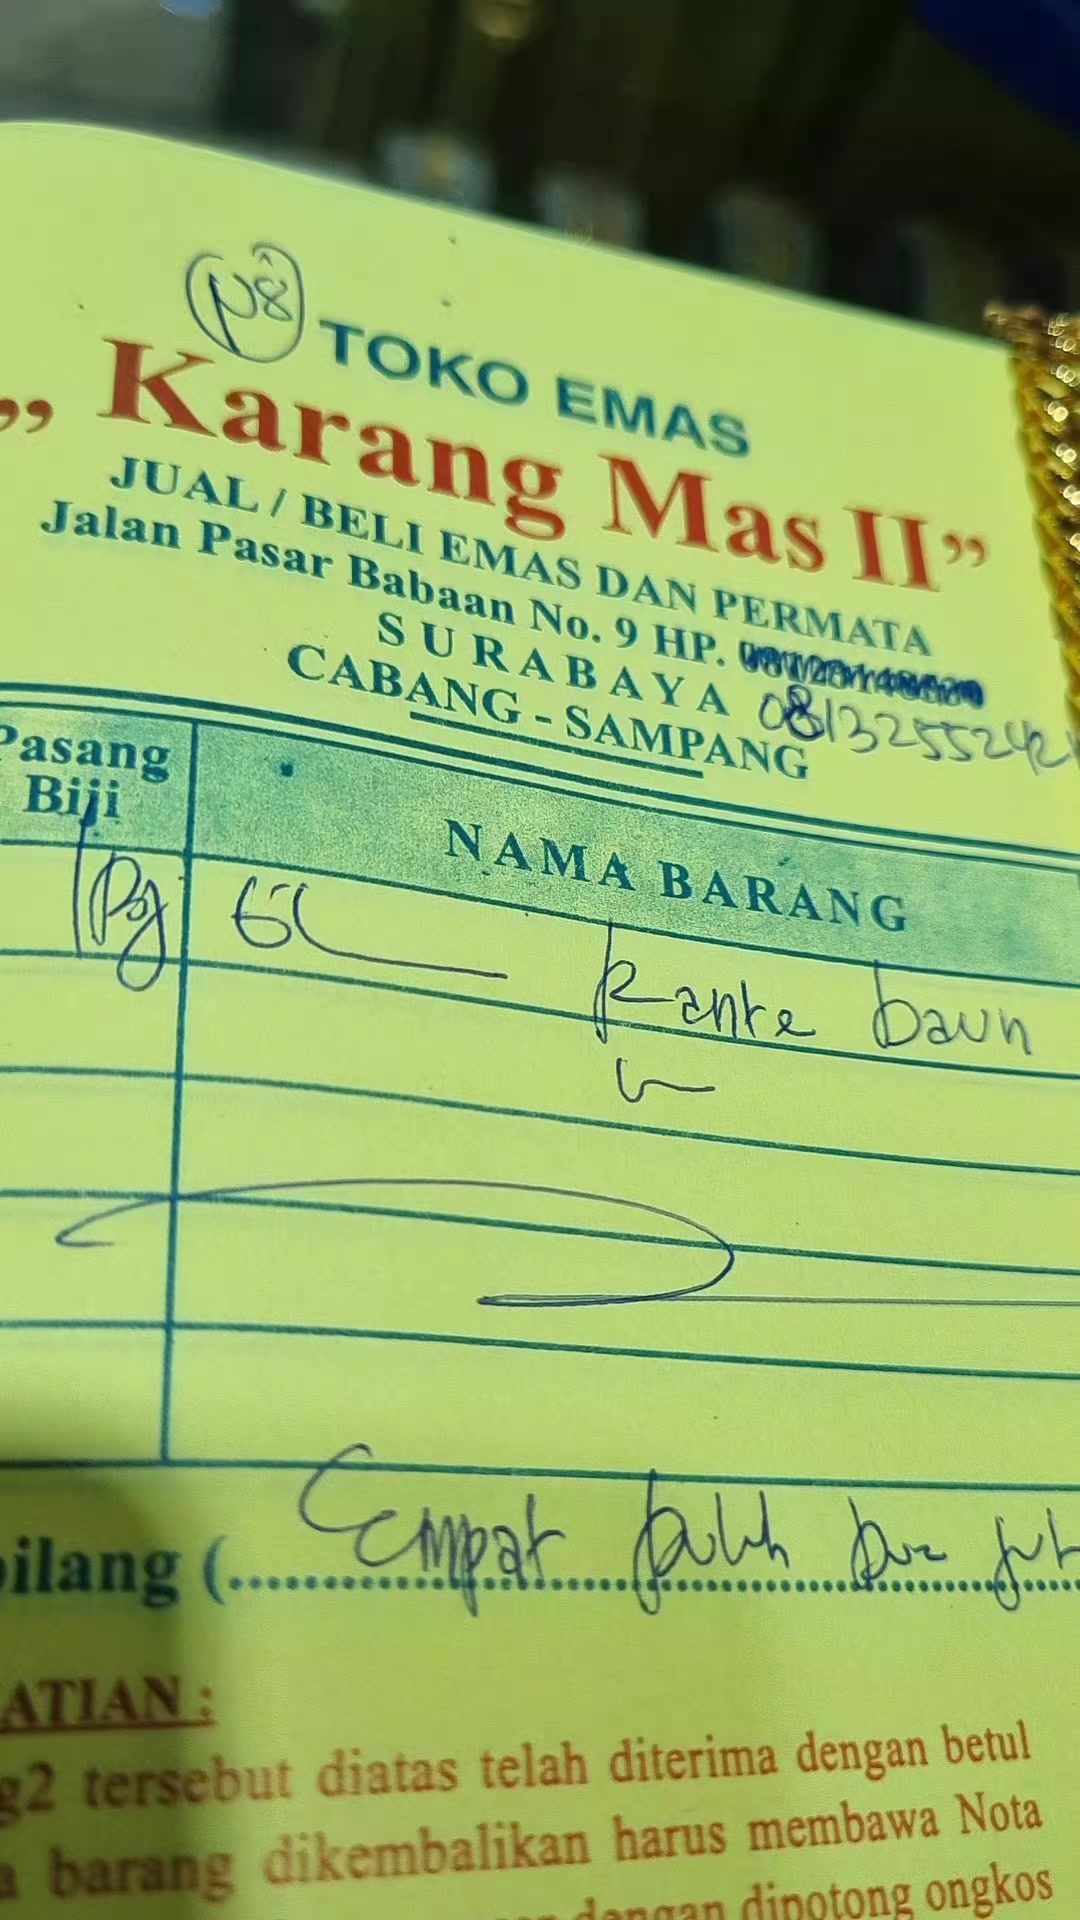 N8
TOKO EMAS
„ Karang Mas II”
JUAL / BELI EMAS DAN PERMATA
Jalan Pasar Babaan No. 9 HP.
SURABAYA 08132552421
CABANG - SAMPANG
Pasang
Biji
NAMA BARANG
1 Psg GL Rante Daun
bilang ( Empat puluh dua jut
ATIAN :
g2 tersebut diatas telah diterima dengan betul
a barang dikembalikan harus membawa Nota
dengan dipotong ongkos